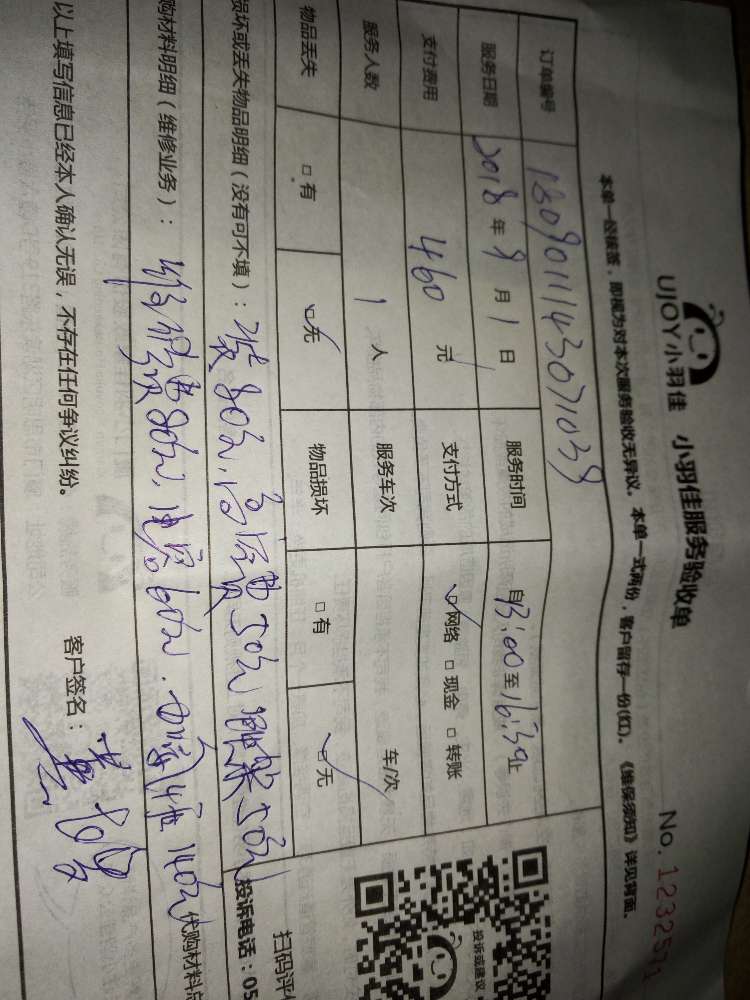 UJOY小羽佳 小羽佳服务验收单
No. 1232571
本单一经核签,即视为对本次服务验收无异议。本单一式两份,客户留存一份(红)。《维保须知》详见背面。
订单编号
服务日期 2018 年 9 月 1 日 服务时间 自 13:00 至 16:30 止
支付费用 460 元 支付方式 网络 现金 转账
服务人数 1 人 服务车次 车/次
物品丢失 有 无 物品损坏 有 无
损坏或丢失物品明细(没有可不填):
80元, 50元 50元
购材料明细(维修业务): 80元, 60元 140元
代购材料总
以上填写信息已经本人确认无误,不存在任何争议纠纷。
客户签名:
投诉或建议
扫码评价
投诉电话:05